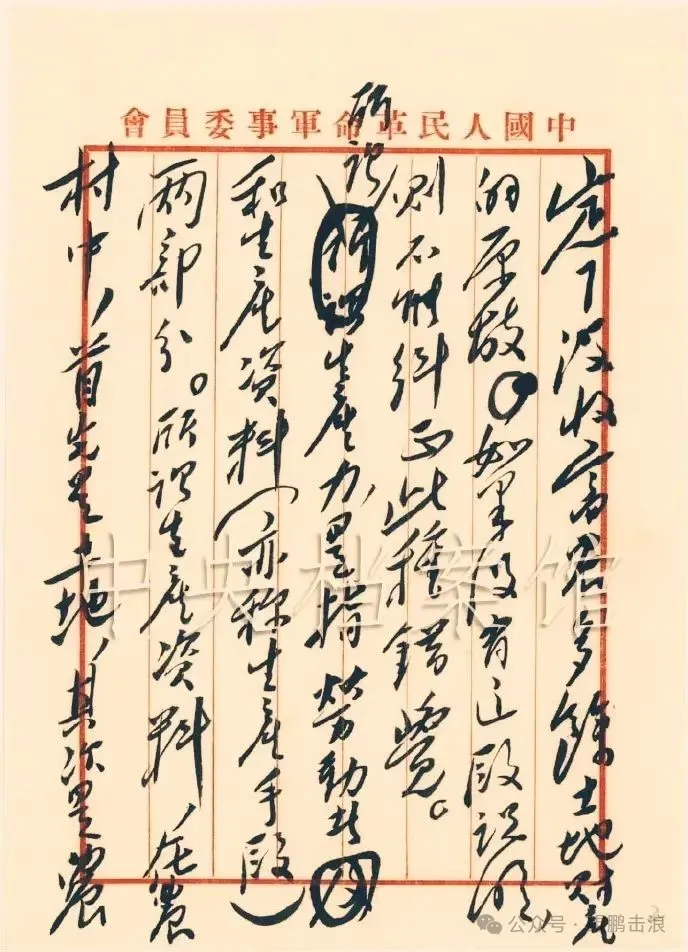 中國人民革命軍事委員會
定了没收富农多餘土地财產
的原故。如果没有这段说明，
则不能纠正此種錯覺。
所谓生產力，是指勞動者
和生產资料（亦称生產手段）
兩部分。所谓生產资料，在農
村中，首先是土地，其次是農
中央档案馆
公众号·鹏击浪